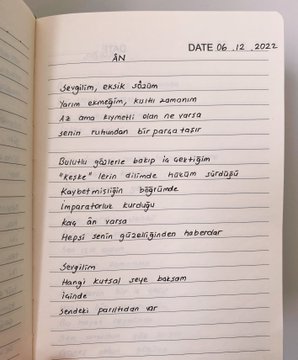 DATE 06.12.2022
ÂN
Sevgilim, eksik sözüm
Yarım ekmeğim, kısıtlı zamanım
Az ama kıymetli olan ne varsa
Senin ruhundan bir parça taşır
Bulutlu gözlerle bakıp iç çektiğim
"Keşke" lerin dilimde hüküm sürdüğü
Kaybetmişliğin böğrümde
İmparatorluk kurduğu
Kaç ân varsa
Hepsi senin güzelliğinden haberdar
Sevgilim
Hangi kutsal şeye baksam
İçinde
Sendeki parıltıdan var